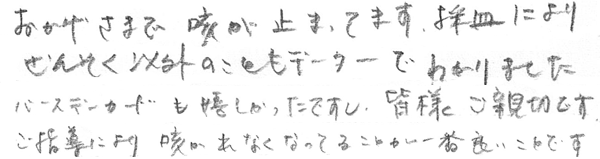 おかげさまで 咳が 止まってます。採血により
ぜんそく以外のこともデーターで わかりました
バースデーカードも嬉しかったですし、皆様 ご親切です
ご指導により 咳がれなくなってることが一番良いことです